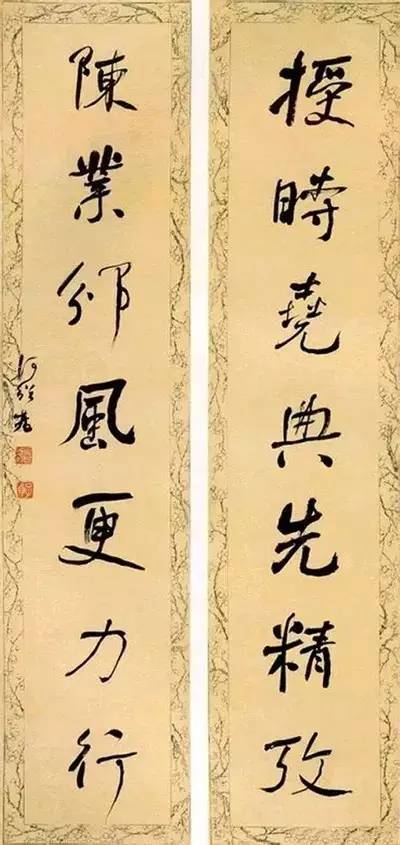 授時堯典先精攷
陳業邠風更力行